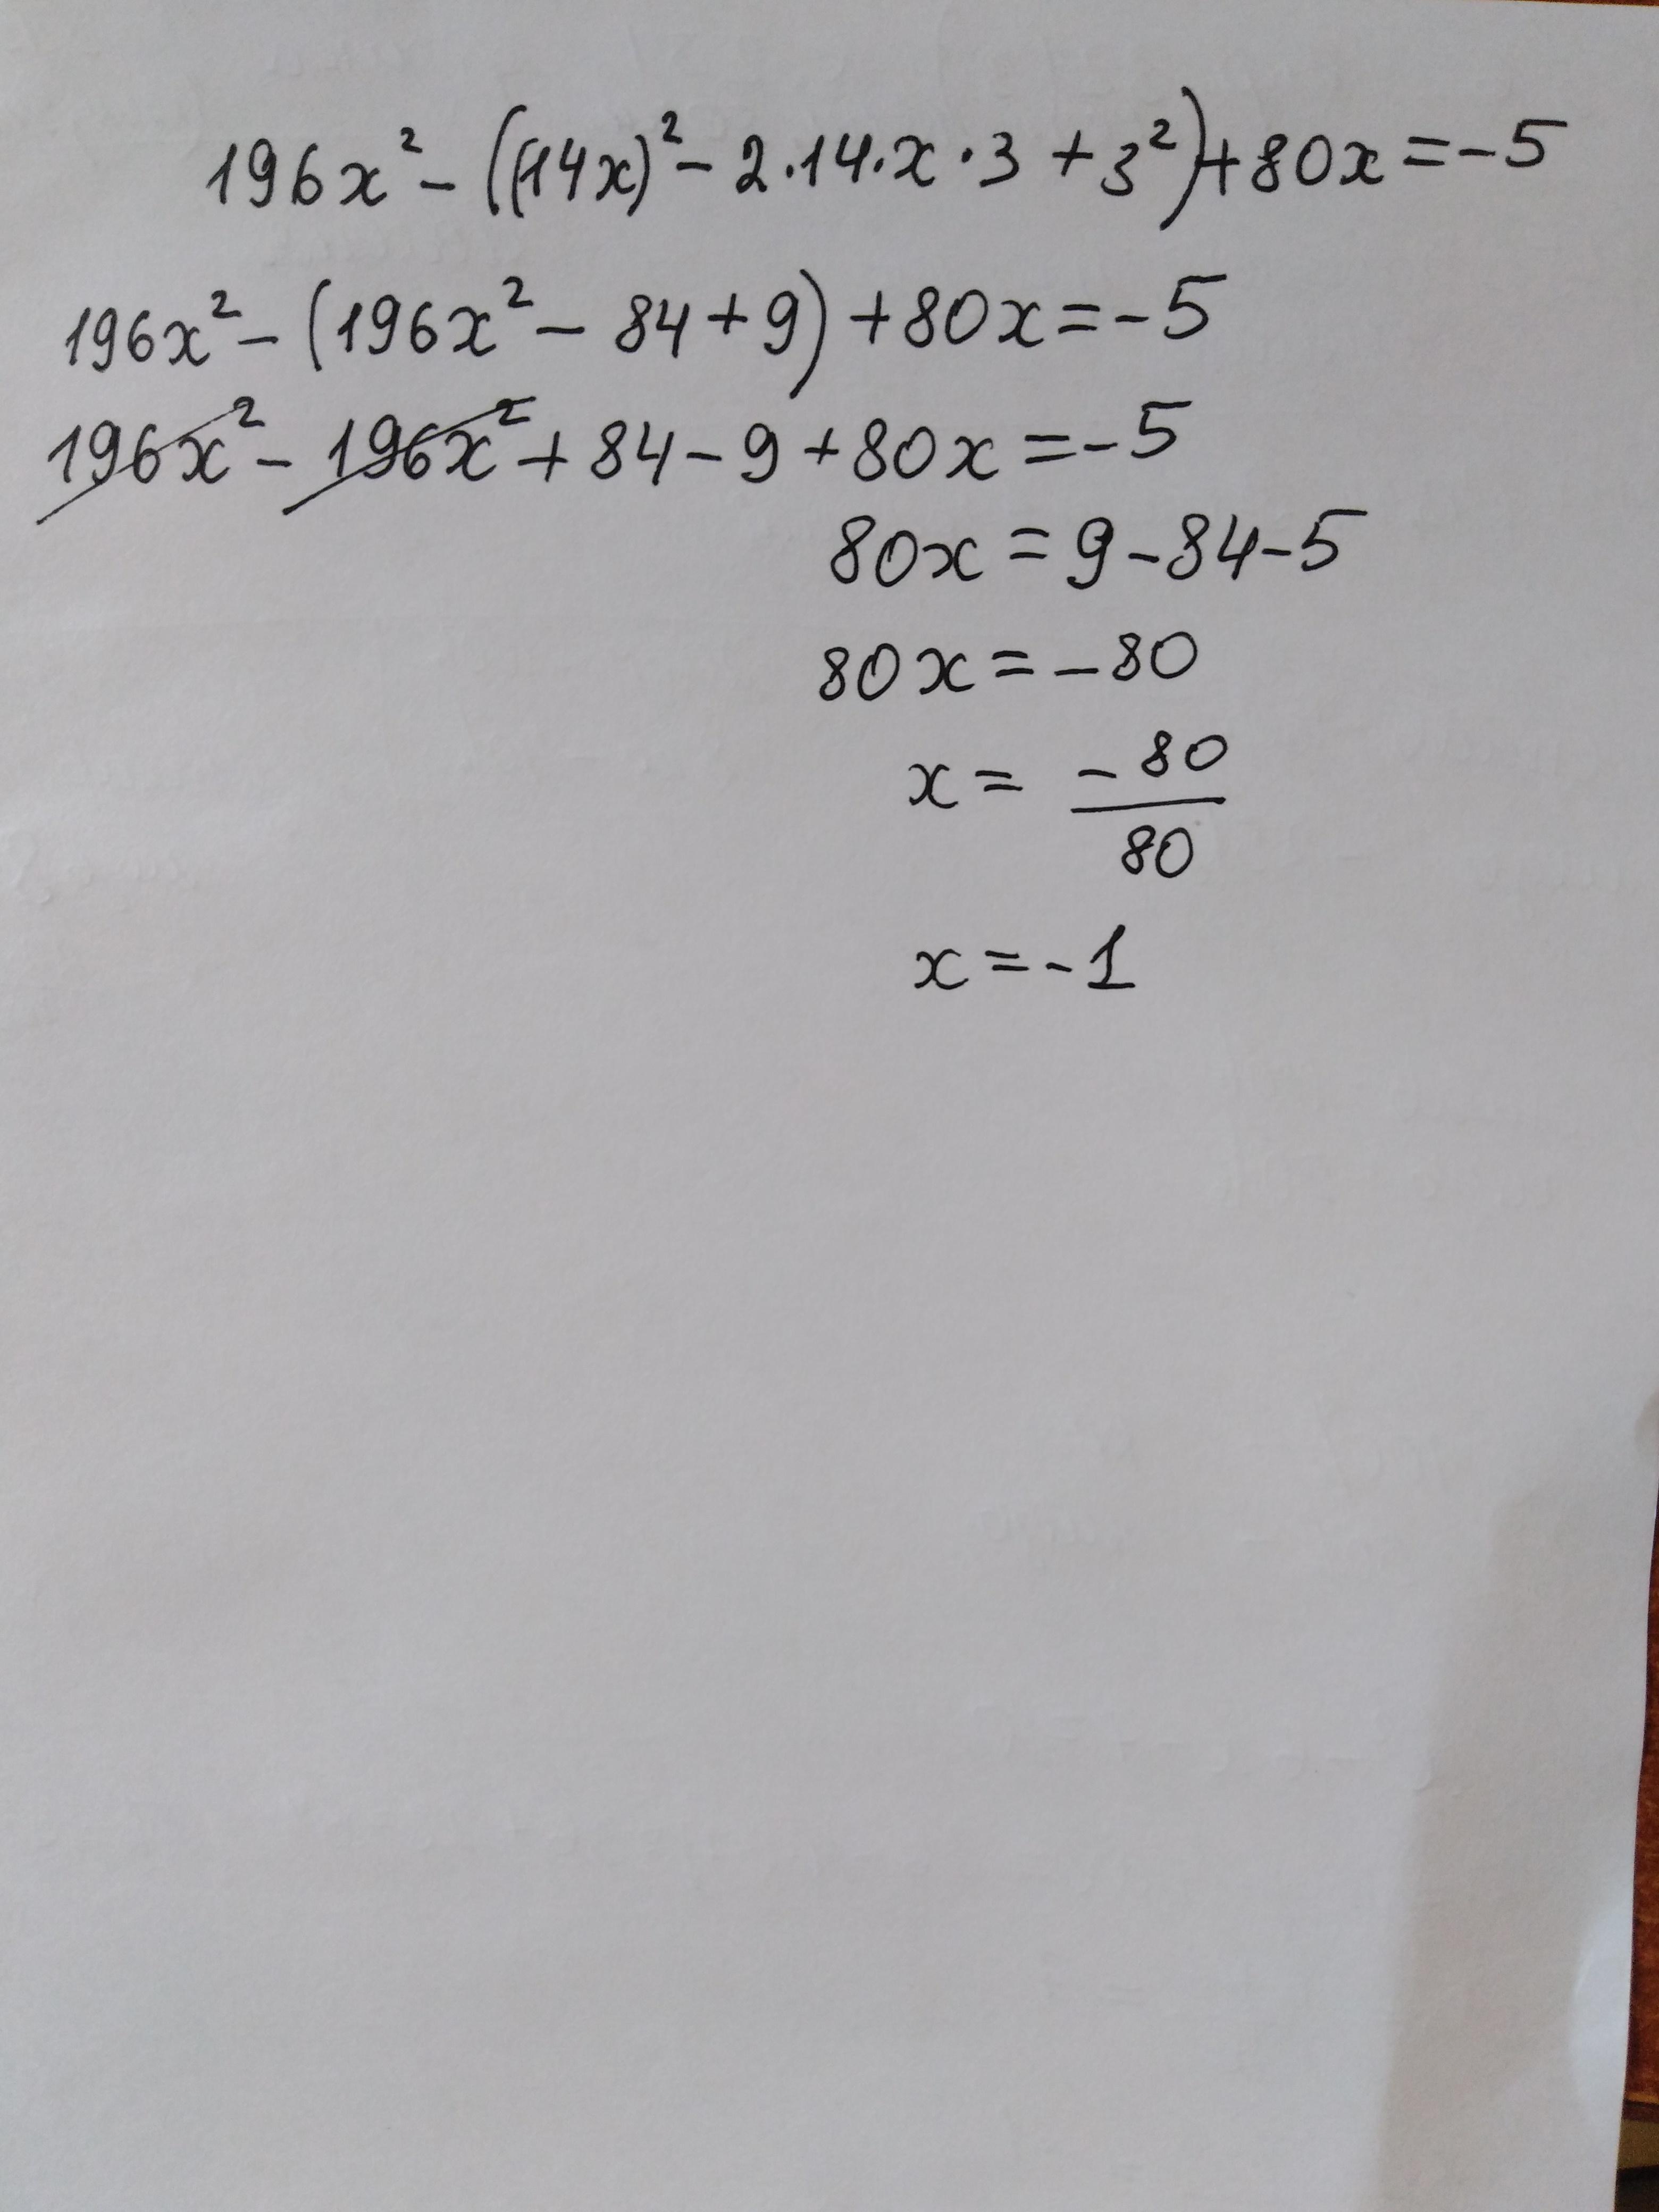 196x² - ((14x)² - 2·14·x·3 + 3²) + 80x = -5
196x² - (196x² - 84 + 9) + 80x = -5
196x² - 196x² + 84 - 9 + 80x = -5
80x = 9 - 84 - 5
80x = -80
x = -80/80
x = -1